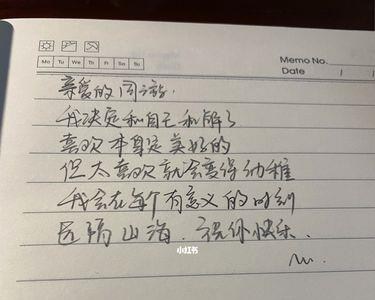 Mo Tu We Th Fr Sa Su
Memo No.
Date / /
亲爱的同游.
我决定和自己和解了
喜欢本身是美好的
但太喜欢就会变得幼稚
我会在每个有意义的时刻
远隔山海.祝你快乐.
小红书